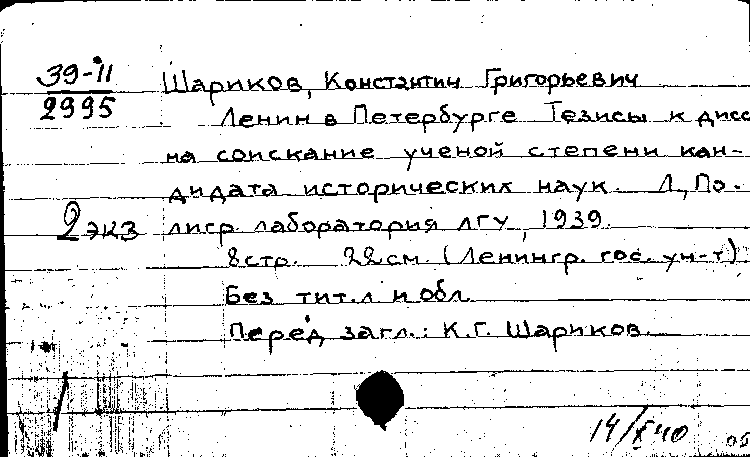 39-11
2995
Шариков, Константин Григорьевич
Ленин в Петербурге Тезисы к дисс
на соискание ученой степени кан-
дидата исторических наук. Л., По-
лигр. лаборатория ЛГУ, 1939.
2 экз
8 стр. 22 см. (Ленингр. гос. ун-т)
Без тит. л и обл.
Перед загл.: К.Г. Шариков.
14/X 40